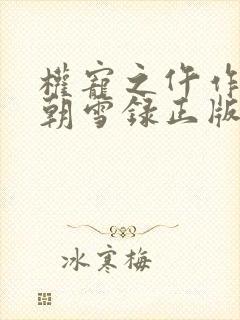 權寵之仵作
朝雪録正版
冰寒梅